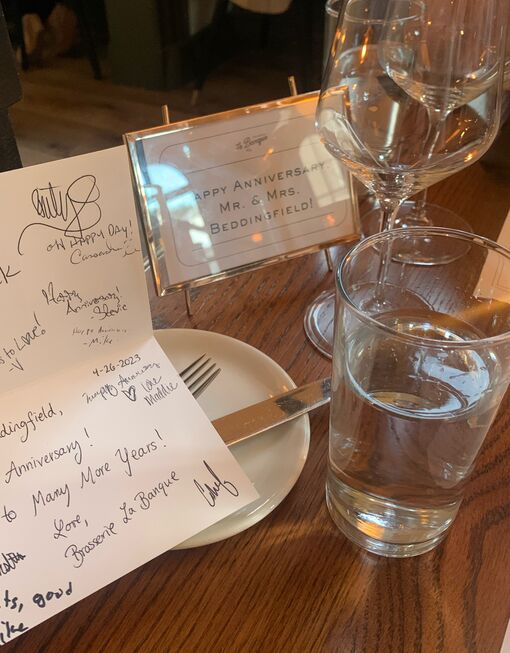 La Banque
Happy Anniversary,
Mr. & Mrs.
Beddingfield!
OH HAPPY DAY!
Cassandra
Happy
Anniversary!
-Stevie
Happy
-Mike
to Love!
-V
4-26-2023
Happy Anniversary
Love
Maddie
dingfield,
Anniversary!
to Many More Years!
Love,
Brasserie La Banque
ts, good